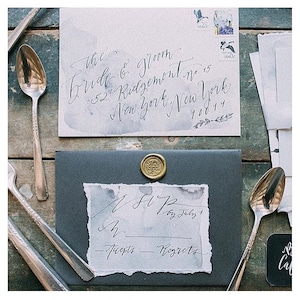 the
bride & groom
52 Ridgemont no 15
New York, New York
10014
RSVP
By July 1
M
Accepts Regrets